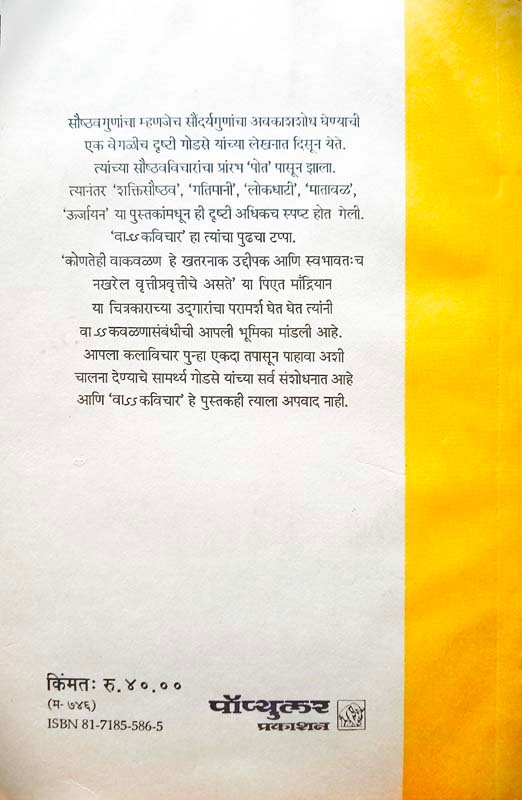 सौष्ठवगुणांचा म्हणजेच सौंदर्यगुणांचा अवकाशशोध घेण्याची
एक वेगळीच दृष्टी गोडसे यांच्या लेखनात दिसून येते.
त्यांच्या सौष्ठवविचारांचा प्रारंभ ‘पोत’ पासून झाला.
त्यानंतर ‘शक्तिसौष्ठव’, ‘गतिपानी’, ‘लोकधाटी’, ‘मातावळ’,
‘ऊर्जायन’ या पुस्तकांमधून ही दृष्टी अधिकच स्पष्ट होत गेली.
‘वाऽऽकविचार’ हा त्यांचा पुढचा टप्पा.
‘कोणतेही वाकवळण हे खतरनाक उद्दीपक आणि स्वभावतःच
नखरेल वृत्तीप्रवृत्तीचे असते’ या पिएत माँद्रियान
या चित्रकाराच्या उद्‌गारांचा परामर्श घेत घेत त्यांनी
वाऽऽकवळणासंबंधीची आपली भूमिका मांडली आहे.
आपला कलाविचार पुन्हा एकदा तपासून पाहावा अशी
चालना देण्याचे सामर्थ्य गोडसे यांच्या सर्व संशोधनात आहे
आणि ‘वाऽऽकविचार’ हे पुस्तकही त्याला अपवाद नाही.
किंमतः रु.४०.००
(म- ७४६)
ISBN 81-7185-586-5
पॉप्युलर
प्रकाशन